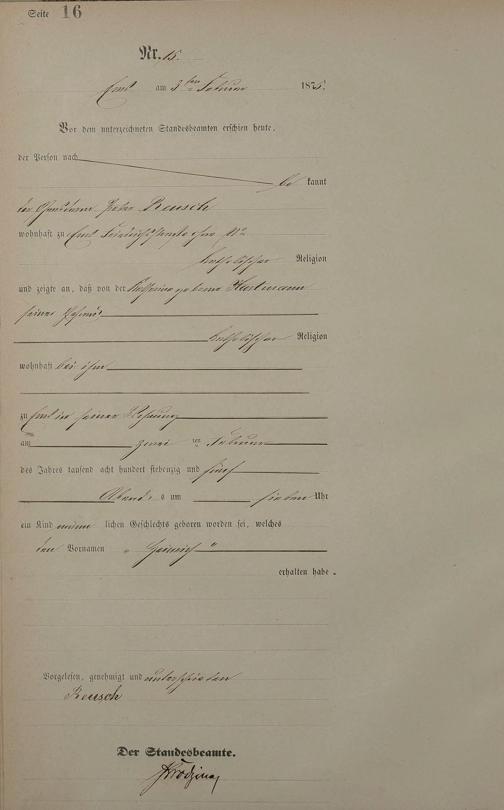 Seite 16
Nr. 15.
Ems am 3ten Februar 1875.
Vor dem unterzeichneten Standesbeamten erschien heute,
der Person nach
be kannt
der Peter Reusch
wohnhaft zu Ems
katholischer Religion
und zeigte an, daß von der Katharina geborene Hartmann
seiner Ehefrau
katholischer Religion
wohnhaft bei ihm
zu Ems in seiner Wohnung
am zwei ten Februar
des Jahres tausend acht hundert siebenzig und fünf
Abends um sieben Uhr
ein Kind männ lichen Geschlechts geboren worden sei, welches
den Vornamen „ Heinrich "
erhalten habe.
Vorgelesen, genehmigt und unterschrieben
Reusch
Der Standesbeamte.